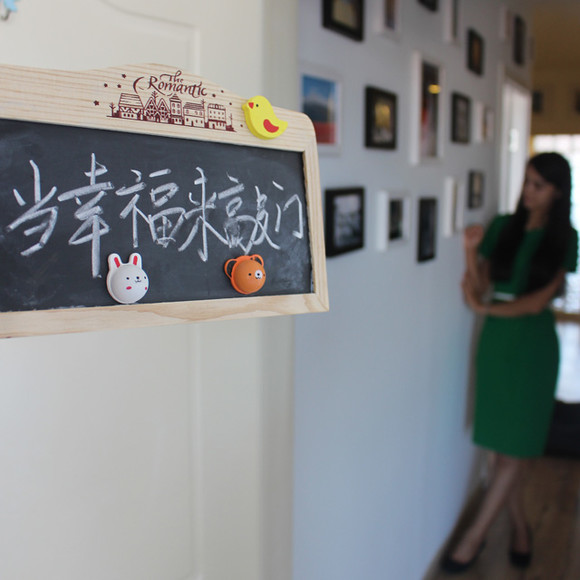 The
Romantic
当幸福来敲门